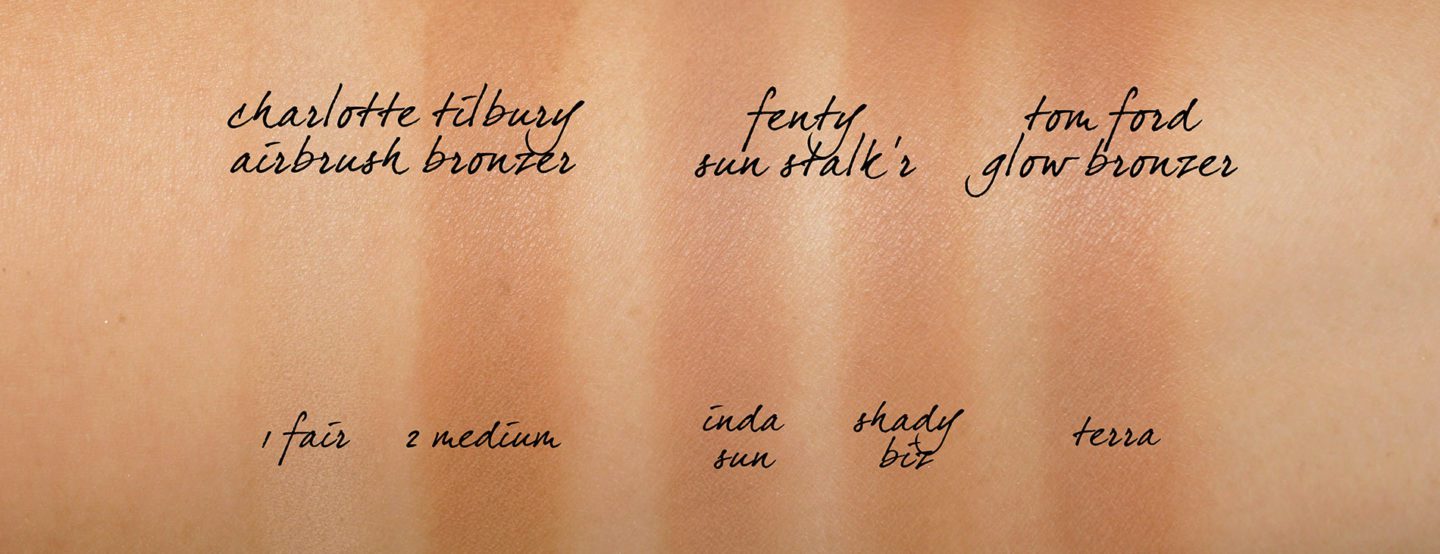 charlotte tilbury
airbrush bronzer
fenty
sun stalk'r
tom ford
glow bronzer
1 fair
2 medium
inda
sun
shady
biz
terra